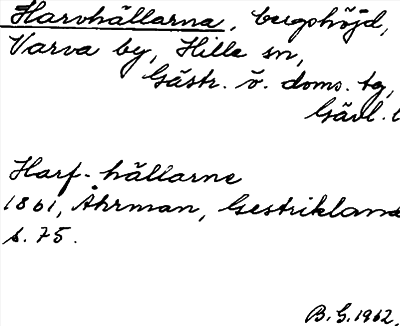 Harvhällarna, bergshöjd,
Varva by, Hille sn,
Gästr. ö. doms. tg,
Gävl. l
Harf-hällarne
1861, Åhrman, Gestrikland
s. 75.
B.G. 1962.